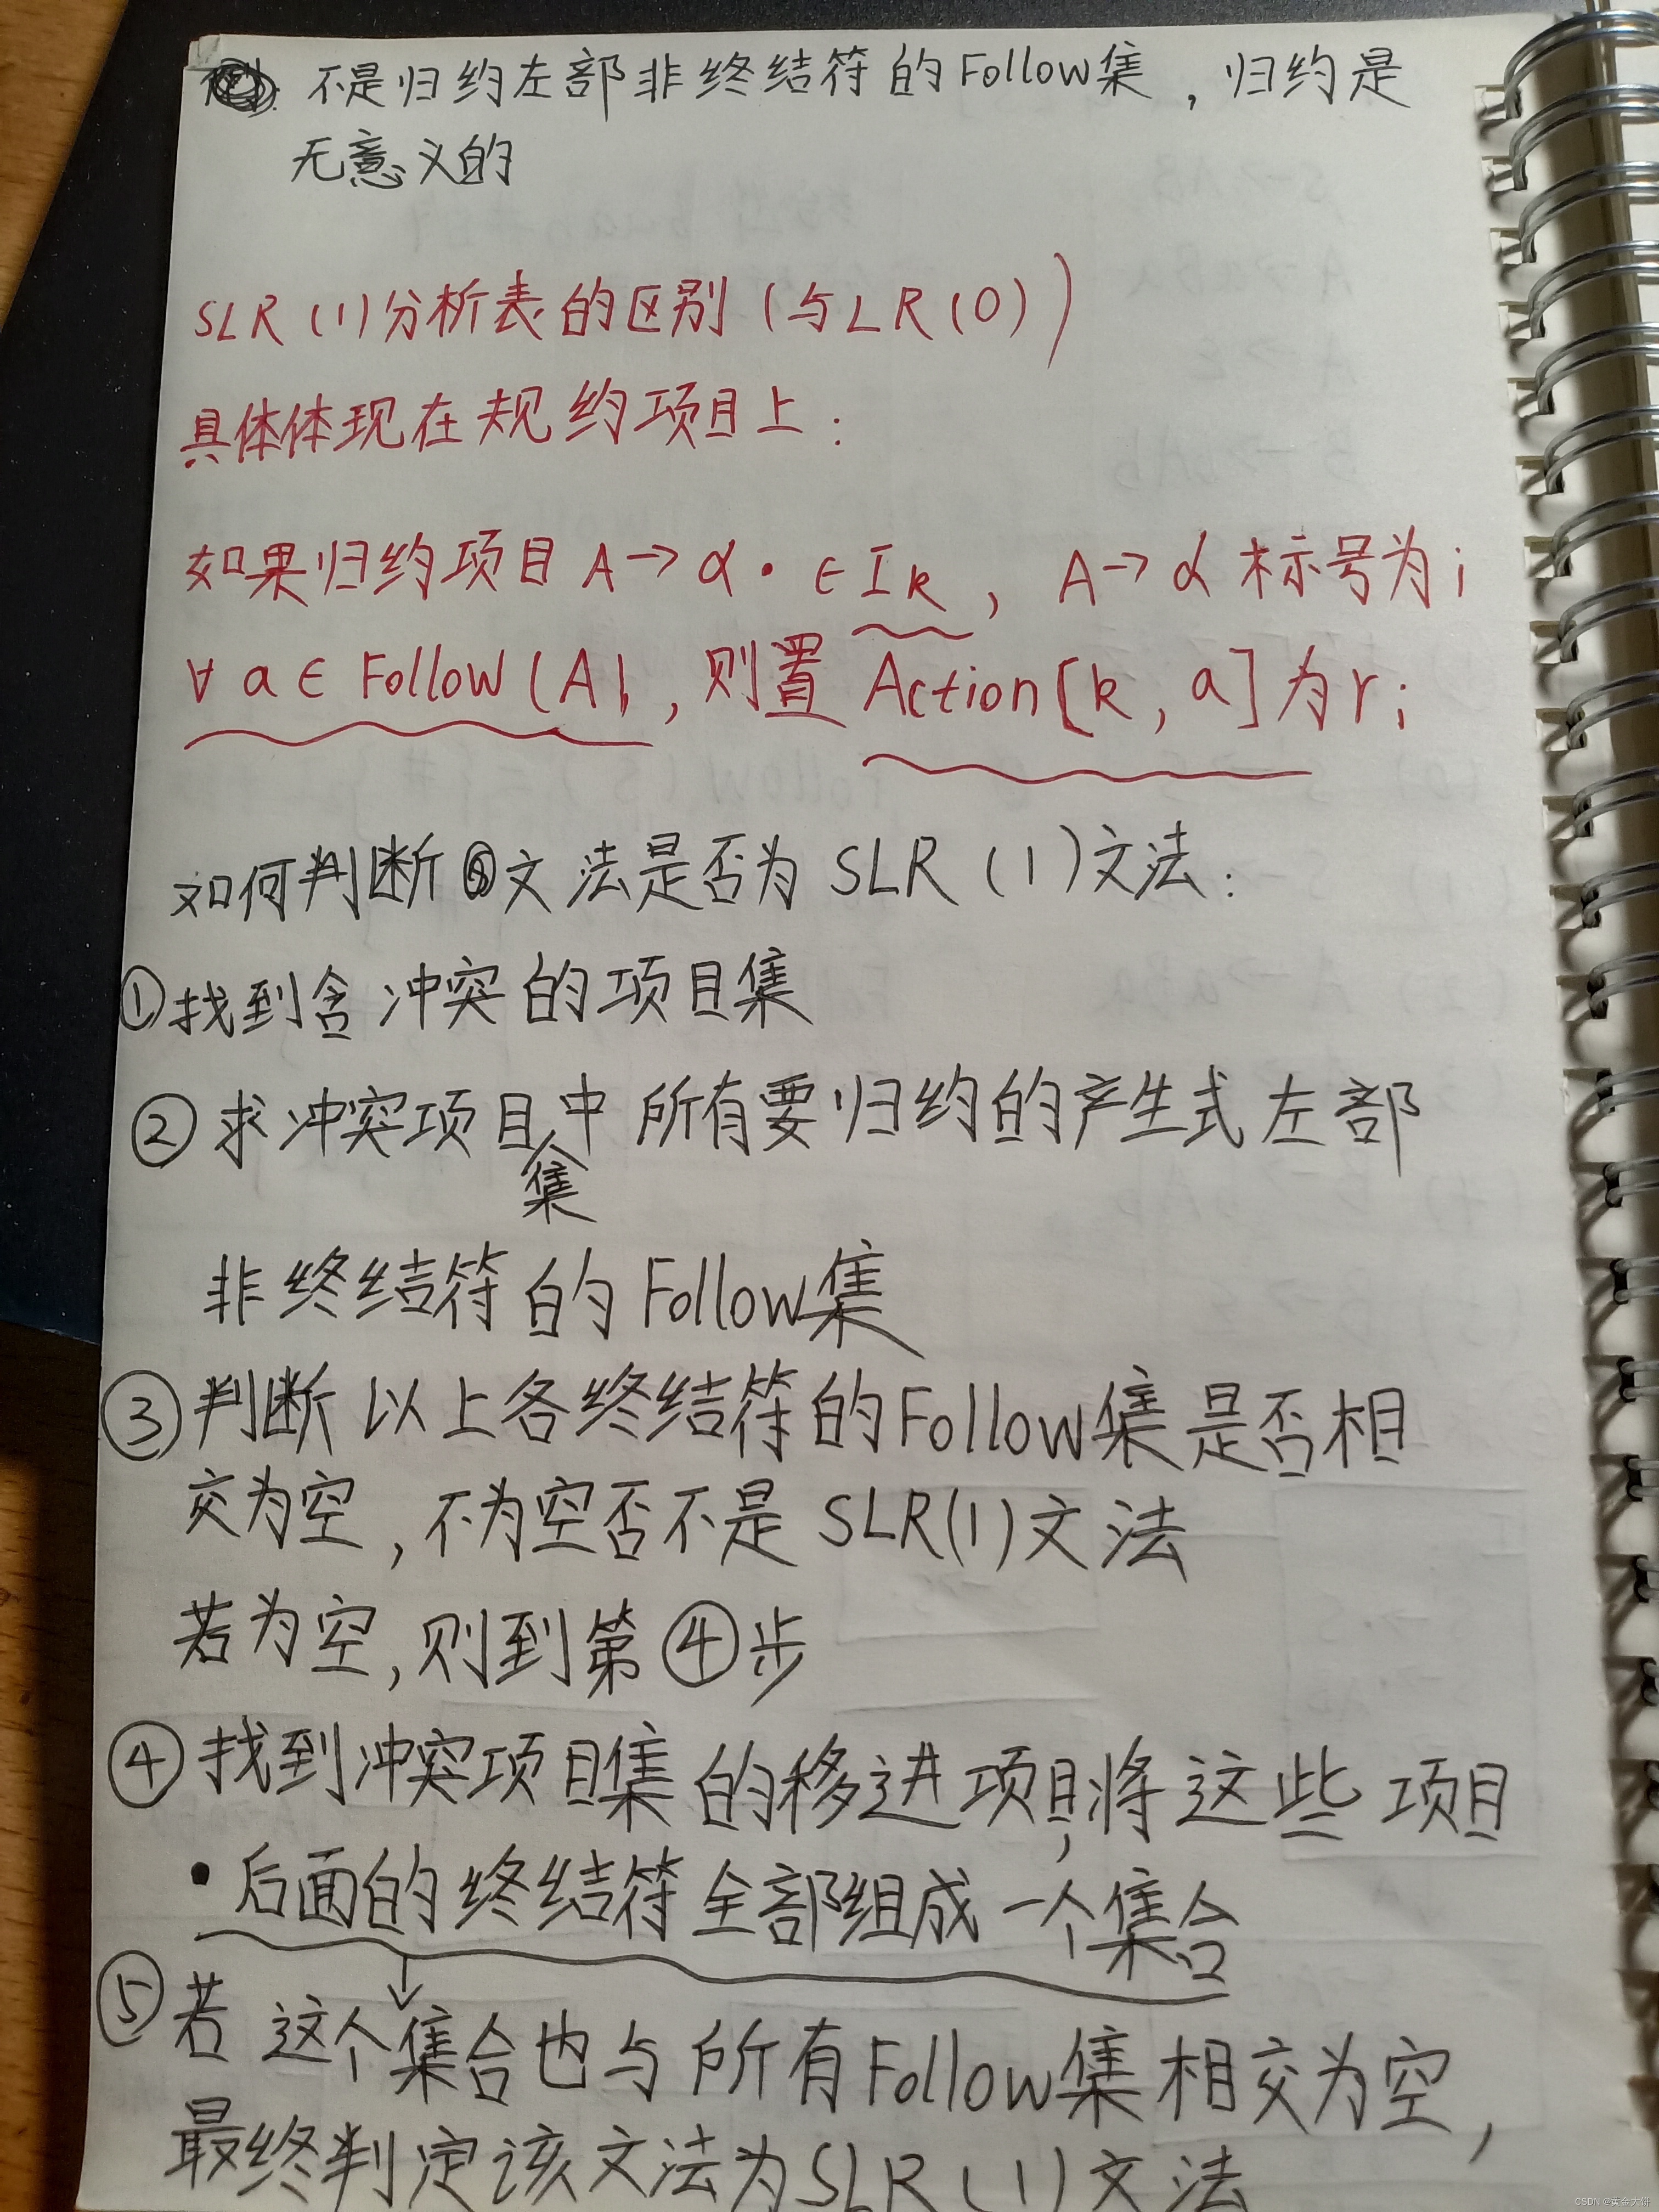 不是归约左部非终结符的Follow集，归约是
无意义的
SLR(1)分析表的区别(与LR(0))
具体体现在规约项目上:
如果归约项目A→α·∈Ik，A→α标号为i
∀a∈Follow(A)，则置Action[k，a]为ri
如何判断文法是否为SLR(1)文法:
①找到含冲突的项目集
②求冲突项目集中所有要归约的产生式左部
非终结符的Follow集
③判断以上各终结符的Follow集是否相
交为空，不为空否不是SLR(1)文法
若为空，则到第④步
④找到冲突项目集的移进项目，将这些项目
·后面的终结符全部组成一个集合
⑤若这个集合也与所有Follow集相交为空，
最终判定该文法为SLR(1)文法
CSDN @黄金大饼